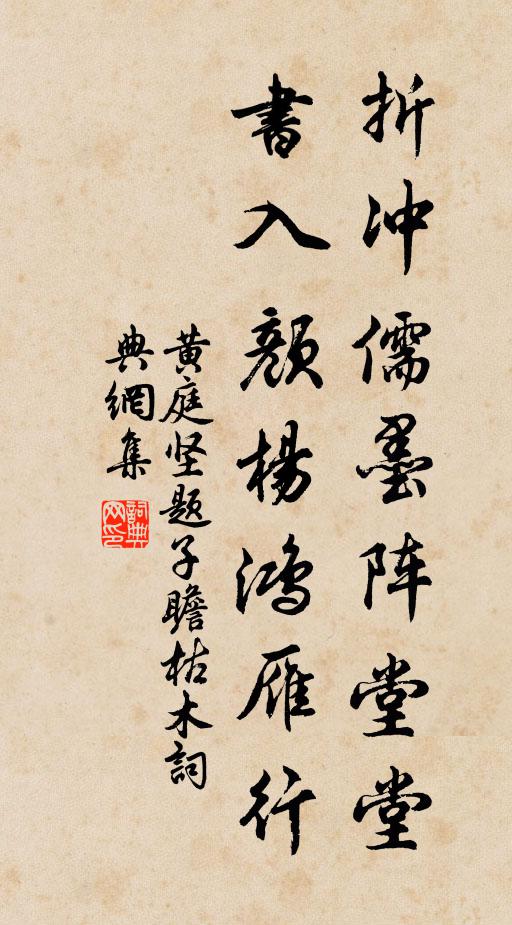 折冲儒墨阵堂堂
書入颜楊鸿雁行
黄庭坚题子瞻枯木詞
典網集
詞典
网印